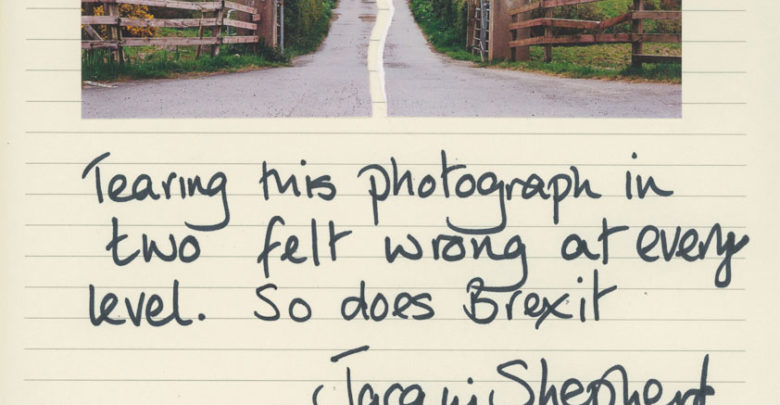 Tearing this photograph in
two felt wrong at every
level. So does Brexit
Shepherd